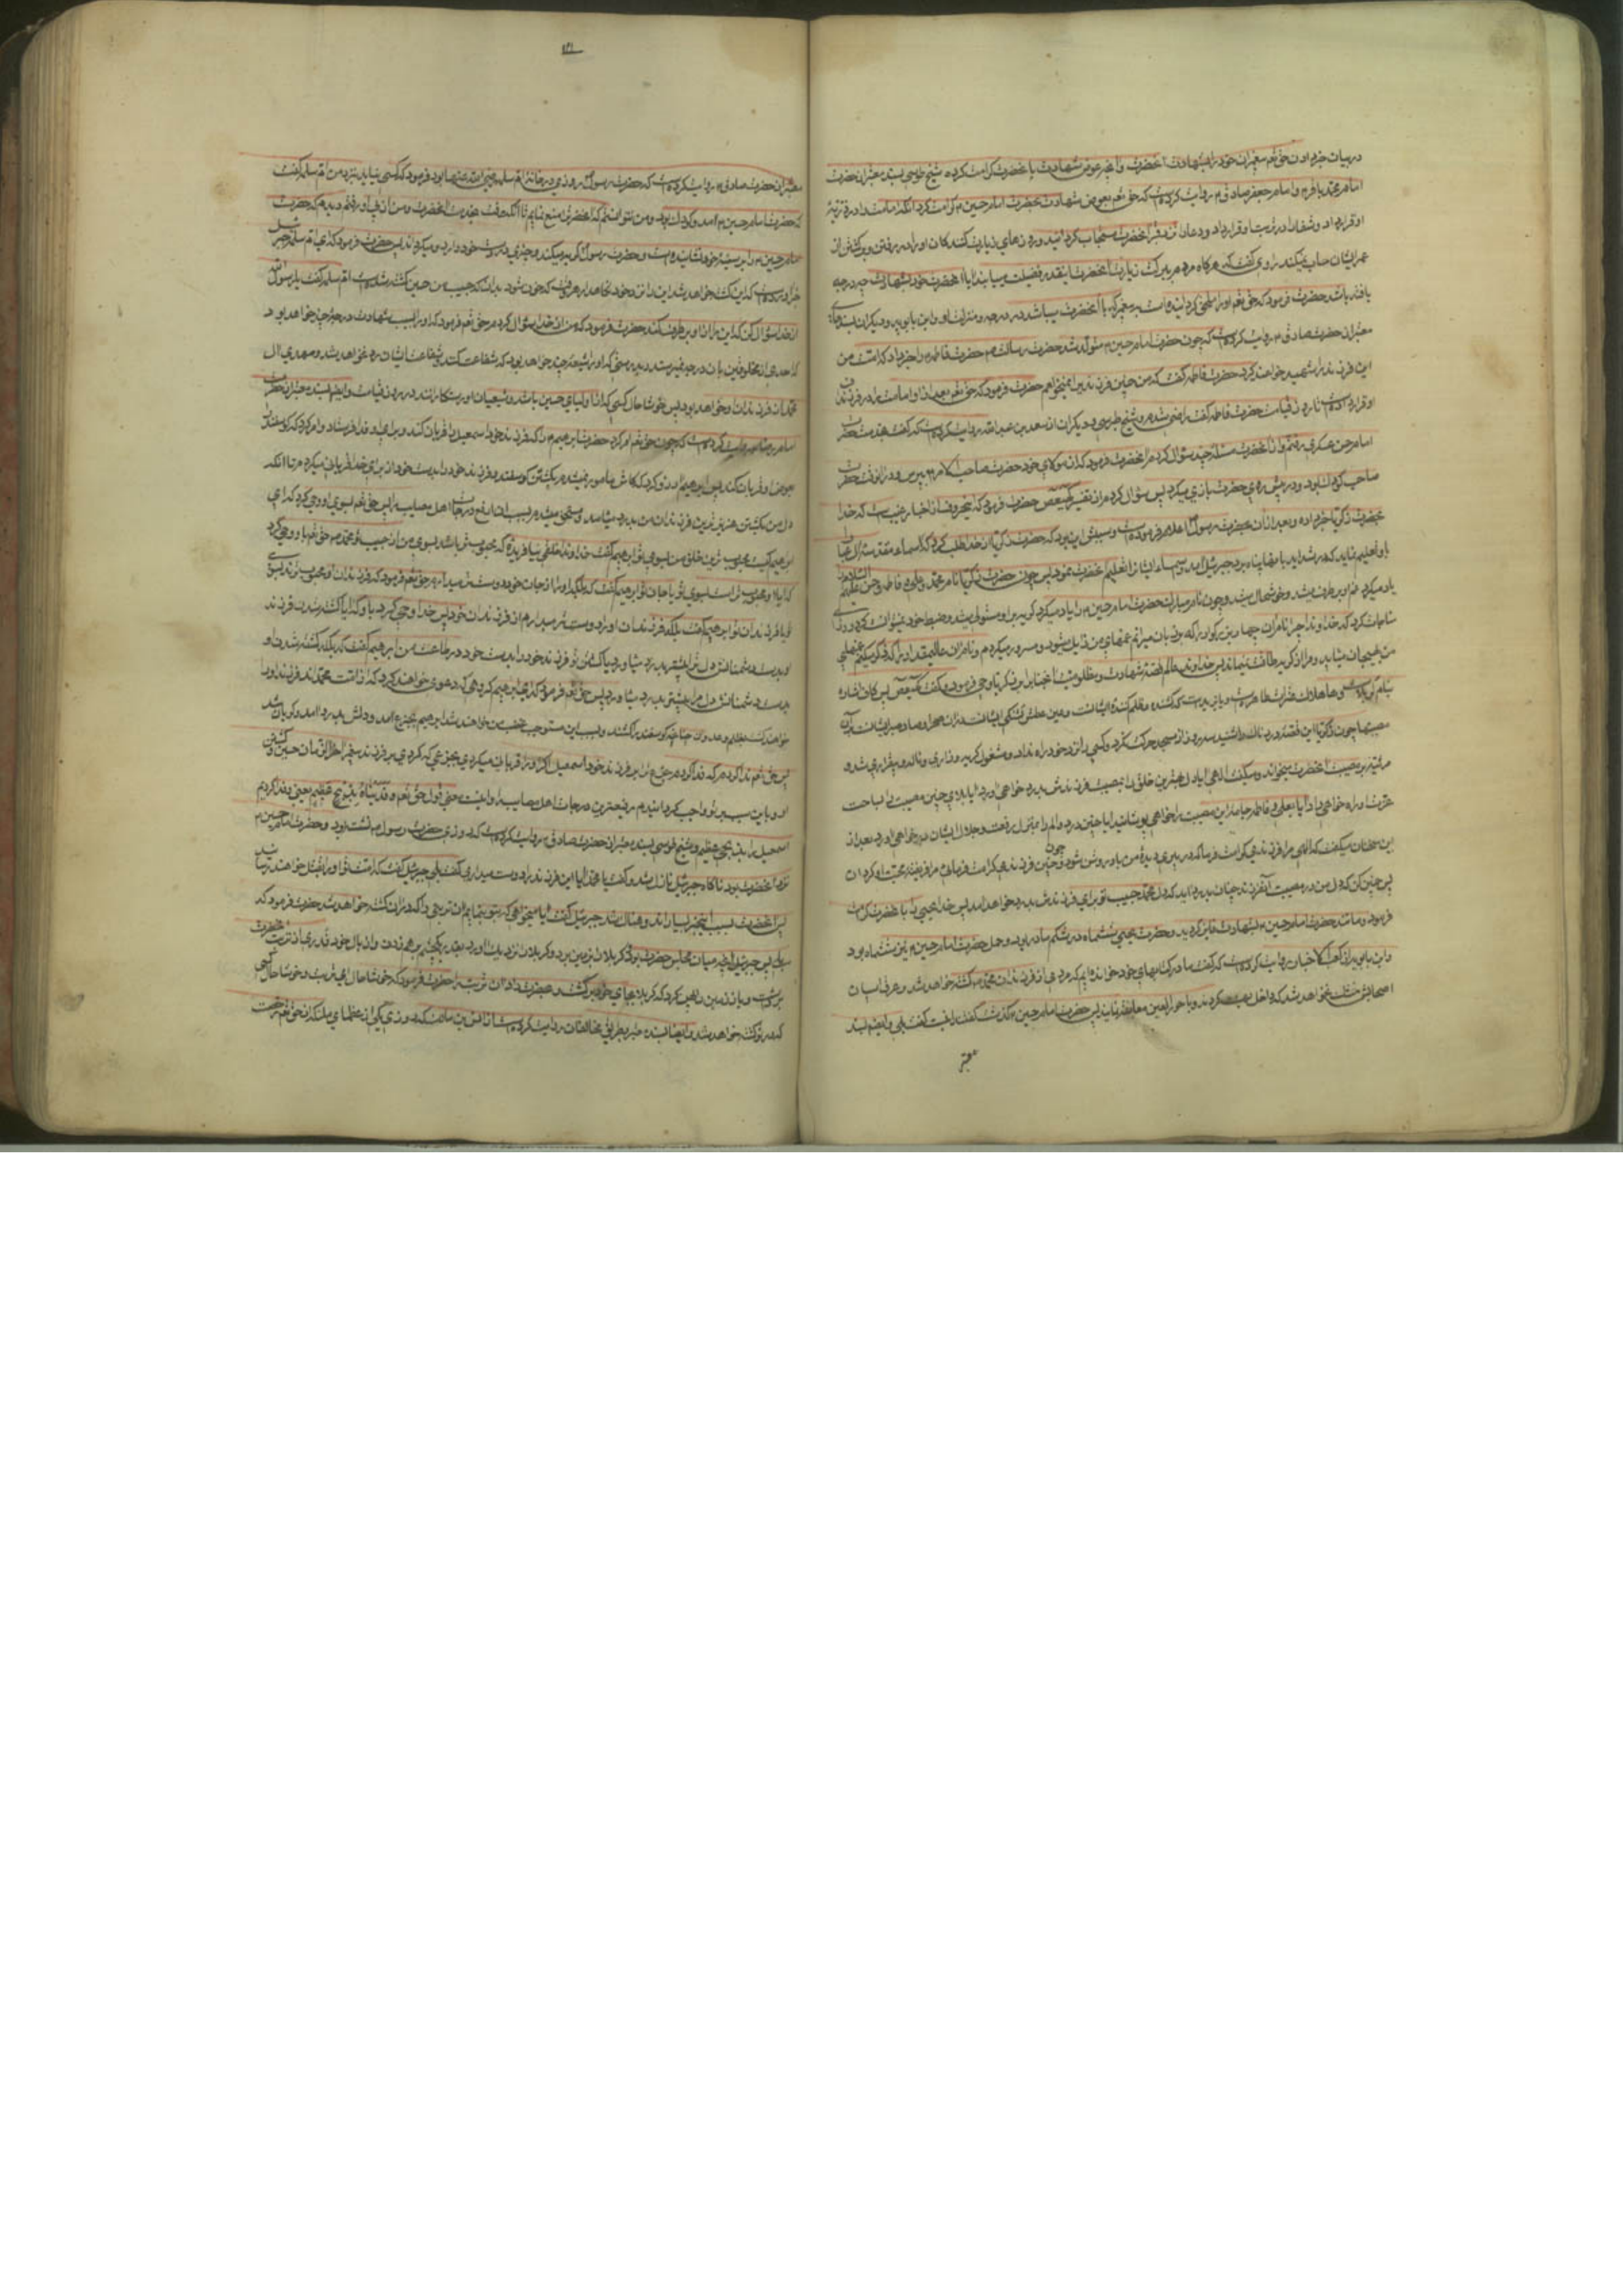 در بیان خبر دادن حق تعم پیغمبران خود را بشهادت آنحضرت و آنچه عوض شهادت با نحضرت کرامت کرده شیخ طوسی بسند معتبر از حضرت
امام محمد باقر و امام جعفر صادق م روایت کرده است که حق تعم بعوض شهادت بحضرت امام حسین م کرامت کرد آنکه امامت را در ذریّهٔ
او قرار داد و شفا را در تربت او قرار داد و دعا را نزد قبر آنحضرت مستجاب گردانید و روزهای زیارت کنندکان او را در رفتن و برگشتن از
عمر ایشان حساب نمیکند راوی گفت که هرکاه مردم ببرکت زیارت آنحضرت اینقدر فضیلت مییابند آیا آنحضرت خود بشهادت چه درجه
یافته باشد حضرت فرمود که حق تعم او را ملحق گردانیده است به پیغمبر که با آنحضرت میباشد در درجه و منزلت او و ابن بابویه و دیگران بسندهای
معتبر از حضرت صادق م روایت کرده است که چون حضرت امام حسین م متولد شد حضرت رسالت ص حضرت فاطمه را خبر داد که امت من
این فرزند ترا شهید خواهند کرد حضرت فاطمه گفت که من چنین فرزندی را نمیخواهم حضرت فرمود که حق تعم بعد از او امامت را در فرزندان
او قرار داده است تا روز قیامت حضرت فاطمه گفت راضی شدم و شیخ طبرسی و دیگران از سعد بن عبدالله روایت کرده است که گفت بخدمت حضرت
امام حسن عسکری رفتم و از آنحضرت مسئلهٔ چند سؤال کردم آنحضرت فرمود که از مولای خود حضرت صاحب الامر بپرس و در آنوقت حضرت
صاحب کودک بود و در پیش روی حضرت بازی میکرد پس سؤال کردم از تفسیر کهیعص حضرت فرمود که این حروف از اخبار غیب است که خدا
بحضرت زکریا خبر داده و بعد از آن بحضرت رسول اعلام فرموده است و سببش این بود که حضرت زکریا از خدا طلب کرد که اسماء مقدسهٔ آل عبا
باو تعلیم نماید که در شداید بآنها پناه برد جبرئیل آمد و اسماء ایشان را تعلیم آنحضرت نمود پس چون حضرت زکریا نام محمد و علی و فاطمه و حسن علیهم السلام را
یاد میکرد غم او برطرف میشد و خوشحال میشد و چون نام مبارک حضرت امام حسین را یاد میکرد گریه بر او مستولی میشد و ضبط خود نمیتوانست کرد روزی
مناجات کرد که خداوندا چرا نام آن چهار بزرگوار را که بر زبان میرانم غمهای من زایل میشود و مسرور میگردم و نام آن عالیمقدار را که ذکر میکنم غمهای
من بهیجان میآید و مرا از گریه طاقت نمیماند پس خداوند عالم قصهٔ شهادت و مظلومیت آنجناب را بزکریا وحی فرمود و گفت کهیعص پس کاف اشاره
بنام کربلاست و ها هلاک عترت طاهره است و یا یزید است که کشنده و ظلم کنندهٔ ایشانست و عین عطش و تشنگی ایشانست در آن صحرا و صاد صبر ایشانست بر آن
مصیبتها چون زکریا این قصهٔ دردناک را شنید سه روز از مسجد حرکت نکرد و کسی را نزد خود راه نداد و مشغول گریه و زاری و ناله و بیقراری شد و
مرثیه بر مصیبت آنحضرت میخواند و میگفت الهی آیا دل بهترین خلق را بمصیبت فرزندش بدرد خواهی آورد آیا بلای چنین مصیبت را بساحت
عزت او راه خواهی داد آیا بعلی و فاطمه جامهٔ این مصیبت را خواهی پوشانید آیا چنین درد و الم را بمنزل رفعت و جلال ایشان در خواهی آورد بعد از
این سخنان میگفت که الهی مرا فرزندی کرامت فرما که در پیری دیدهٔ من باو روشن شود و چون چنین فرزندی کرامت فرمائی مرا فریفتهٔ محبت او گردان
پس چنین کن که دل من در مصیبت آنفرزند چنان بدرد آید که دل محمد حبیب تو برای فرزندش بدرد خواهد آمد پس خدا یحیی را بآنحضرت کرامت
فرمود و مانند حضرت امام حسین م بشهادت فایز گردید و حضرت یحیی ششماه در شکم مادر بود و حمل حضرت امام حسین م نیز ششماه بود
و ابن بابویه از کعب الاخبار روایت کرده است که گفت ما در کتابهای خود خوانده‌ایم که مردی از فرزندان محمد ص کشته خواهد شد و عرق اسبان
اصحابش خشک نخواهد شد که داخل بهشت گردند و با حورالعین معانقه نمایند پس حضرت امام حسین م گذشت گفتند اینست گفت بلی و ایضم بسند
معتبر
۱۳۱
معتبر از حضرت صادق م روایت کرده است که حضرت رسول روزی در خانهٔ ام سلمه رضی الله عنها بود فرمود که کسی نیاید بنزد من ام سلمه گفت
که حضرت امام حسین م آمد و کودک بود و من نتوانستم که آنحضرت را منع نمایم تا آنکه رفت بخدمت آنحضرت و من از قفای او رفتم و دیدم که حضرت
امام حسین م را بر سینهٔ خود نشانیده است و حضرت رسول گریه میکند و چیزی در دست خود دارد و میگرداند پس حضرت فرمود که ای ام سلمه جبرئیل
خبر آورده است که این کشته خواهد شد این را نزد خود نگاهدار هر وقت که خون شود بدان که حبیب من حسین کشته شده است ام سلمه گفت یا رسول الله
از خدا سؤال کن که این را از او برطرف کند حضرت فرمود که من از خدا سؤال کردم حق تعم فرمود که او را بسبب شهادت درجهٔ چند خواهد بود
که احدی از مخلوقین بآن درجه نمیرسد و بدرستی که او را شیعهٔ چند خواهد بود که شفاعت کنند و شفاعت ایشان رد نخواهد شد و مهدی آل
محمد از فرزندان او خواهد بود پس خوشا حال کسی که از اولیای حسین باشد و شیعیان او رستکارانند در روز قیامت و ایضم بسند معتبر از حضرت
امام رضا م روایت کرده است که چون حق تعم امر کرد حضرت ابرهیم م را که فرزند خود اسمعیل را قربان کند و برای او فدا فرستاد و امر کرد که گوسفند را
بعوض او قربان کند پس ابرهیم آرزو کرد که کاش مامور نمیشدم بکشتن گوسفند و فرزند خود را بدست خود از برای خدا قربانی میکردم تا آنکه
دل من بکشتن عزیزترین فرزندان من بدرد میآمد و مستحق میشدم بسبب آن ارفع درجات اهل مصایب را پس حق تعم بسوی او وحی کرد که ای
ابرهیم کیست محبوب ترین خلق من بسوی تو ابرهیم گفت خداوندا خلقی نیافریدهٔ که محبوب تر باشد بسوی من از حبیب تو محمد ص حق تعم باو وحی کرد
که آیا او محبوب تر است بسوی تو یا جان تو ابرهیم گفت که بلکه او را از جان خود دوست تر میدارم حق تعم فرمود که فرزندان او محبوب ترند بسوی
تو یا فرزندان تو ابرهیم گفت بلکه فرزندان او را دوست تر میدارم از فرزندان خود پس خدا وحی کرد باو که آیا کشته شدن فرزند
او بدست دشمنانش دل ترا بیشتر بدرد میآورد یا کشتن تو فرزند خود را بدست خود در طاعت من ابرهیم گفت که بلکه کشته شدن او
بدست دشمنانش دل مرا بیشتر بدرد میآورد پس حق تعم فرمود که ای ابرهیم گروهی که دعوی خواهند کرد که از امت محمدند فرزند او را
خواهند کشت بظلم و عدوان چنانچه گوسفند را کشند و بسبب این مستوجب غضب من خواهند شد ابرهیم بجزع آمد و دلش بدرد آمد و گریان شد
پس حق تعم ندا کرد که فدا کردم جزع ترا بر فرزند خود اسمعیل اگر او را قربان میکردی بجزعی که کردی بر فرزند پیغمبر آخر الزمان حسین و کشتن
او و باین سبب بر تو واجب گردانیدم رفیعترین درجات اهل مصایب را و اینست معنی قول حق تعم و فدیناه بذبح عظیم یعنی و فدا کردیم
اسمعیل را بذبحی عظیم و شیخ طوسی بسند معتبر از حضرت صادق م روایت کرده است که روزی حضرت رسول م نشسته بود و حضرت امام حسین م
نزد آنحضرت بود ناکاه جبرئیل نازل شد و گفت یا محمد آیا این فرزند را دوست میداری گفت بلی جبرئیل گفت که امت تو او را بقتل خواهند رسانید
پس آنحضرت بسبب این خبر بسیار اندوهناک شد جبرئیل گفت آیا میخواهی که بتو بنمایم آن تربتی را که در آن کشته خواهد شد حضرت فرمود که
بلی پس جبرئیل آنچه میان مجلس حضرت بود تا کربلا زمین برد و کربلا را نزدیک آورد بقدر یک چشم بر هم زدن و از بال خود قدری از تربت حضرت
برگرفت و باز زمین را پهن کرد که کربلا بجای خود برگشت و بحضرت داد آن تربت را حضرت فرمود که خوشا حال ای تربت و خوشا حال کسی
که در تو کشته خواهد شد و ایضا بسند معتبر بطریق مخالفان روایت کرده است از انس بن مالک که روزی یکی از عظمای ملائکه از حق تعم رخصت